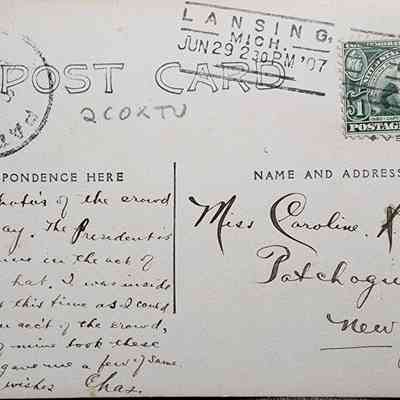 LANSING,
MICH.
JUN 29 2 30 PM '07
POST CARD
2COXTU
1
POSTAGE
PONDENCE HERE
NAME AND ADDRESS
of the crowd
ay. The President is
in the act of
hat. I was inside
this time as I could
acc't of the crowd,
of mine took these
gave me a few of same.
wishes Chas.
Miss Caroline
Patchogu
New